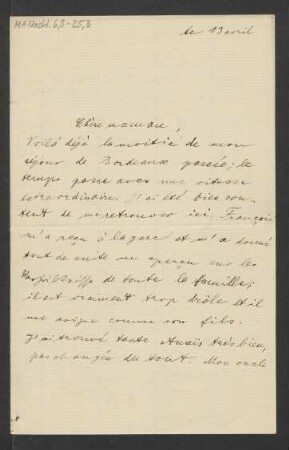 le 13 avril
Chère maman,
Voilà déjà la moitié de mon
séjour de Bordeaux passée; le
temps passe avec une vitesse
extraordinaire. J'ai été bien con-
tent de me retrouver ici. François
m'a reçu à la gare et m'a donné
tout de suite un aperçu sur les
de toute la famille;
il est vraiment trop drôle et il
me soigne comme son fils.
J'ai trouvé tante Anaïs très bien,
pas changée du tout. Mon oncle